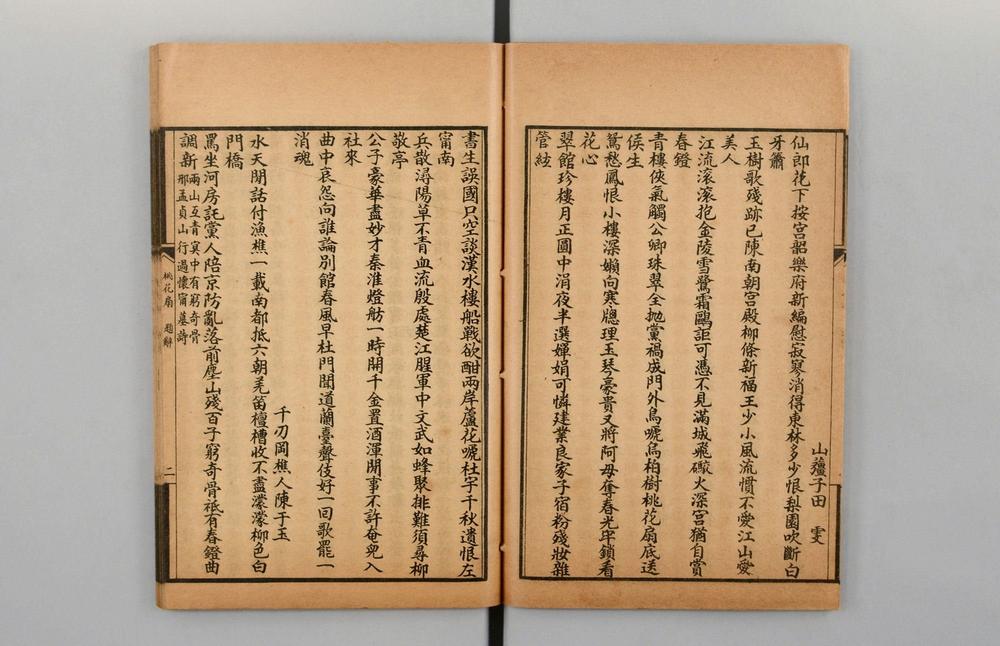 山薑子田　雯
仙郎花下按宮韶樂府新編慰寂寥消得東林多少恨梨園吹斷白
牙簫
玉樹歌殘跡已陳南朝宮殿柳條新福王少小風流慣不愛江山愛
美人
江流滾滾抱金陵雪鷺霜鷗詎可憑不見滿城飛礮火深宮猶自賞
春鐙
青樓俠氣觸公卿珠翠全拋黨禍成門外烏嗁烏柏樹桃花扇底送
侯生
鴛愁鳳恨小樓深嬾向寒牕理玉琴豪貴又將阿母奪春光牢鎖看
花心
翠館珍樓月正圓中涓夜半選嬋娟可憐建業良家子宿粉殘妝雜
管絃
書生誤國只空談漢水樓船戰欲酣兩岸蘆花嗁杜宇千秋遺恨左
甯南
兵散潯陽草不青血流殷處楚江腥軍中文武如蜂聚排難須尋柳
敬亭
公子豪華盡妙才秦淮燈舫一時開千金置酒渾閒事不許奄兒入
社來
曲中哀怨向誰論別館春風早杜門聞道蘭臺聲伎好一回歌罷一
消魂
千刃岡樵人陳于玉
水天閒話付漁樵一載南都抵六朝羌笛檀槽收不盡濛濛柳色白
門橋
罵坐河房託黨人陪京防亂落前塵山殘百子窮奇骨祇有春鐙曲
調新
兩山互青冥中有窮奇骨
邢孟貞山行過懷甯墓詩
桃花扇　題辭
二